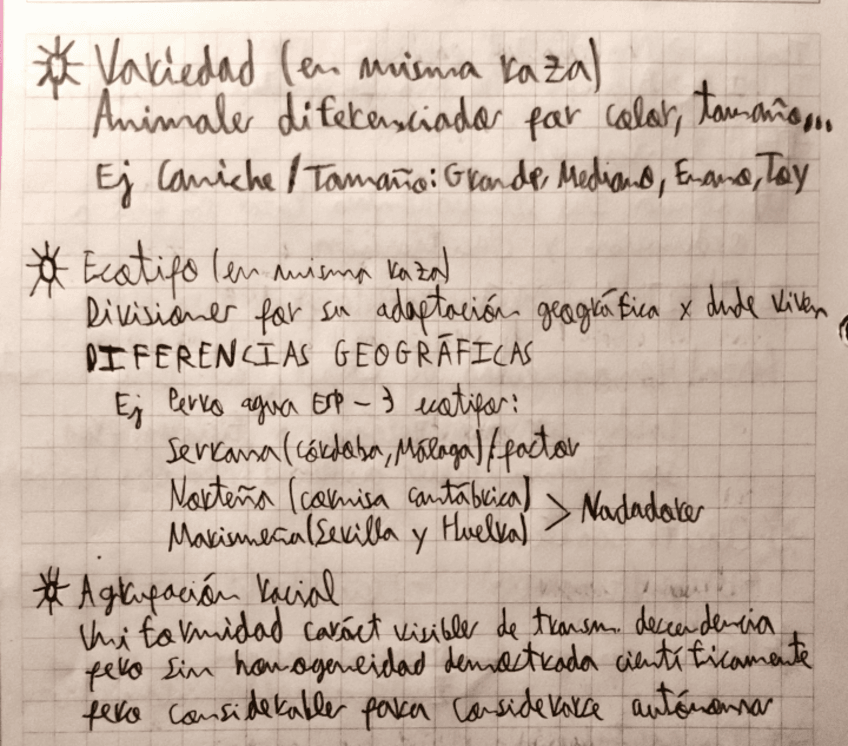 Variedad (en misma raza)
Animales diferenciados por color, tamaño...
Ej Caniche / Tamaño: Grande, Mediano, Enano, Toy
Ecotipo (en misma raza)
Divisiones por su adaptación geográfica x dnde viven
DIFERENCIAS GEOGRÁFICAS
Ej Perro agua ESP - 3 ecotipos:
Serrana (Córdoba, Málaga) / pastor
Norteña (cornisa cantábrica)
> Nadadores
Marismeña (Sevilla y Huelva)
Agrupación racial
Uniformidad caráct visibles de transm. descendencia
pero sin homogeneidad demostrada científicamente
pero considerables para considerarse autónomas